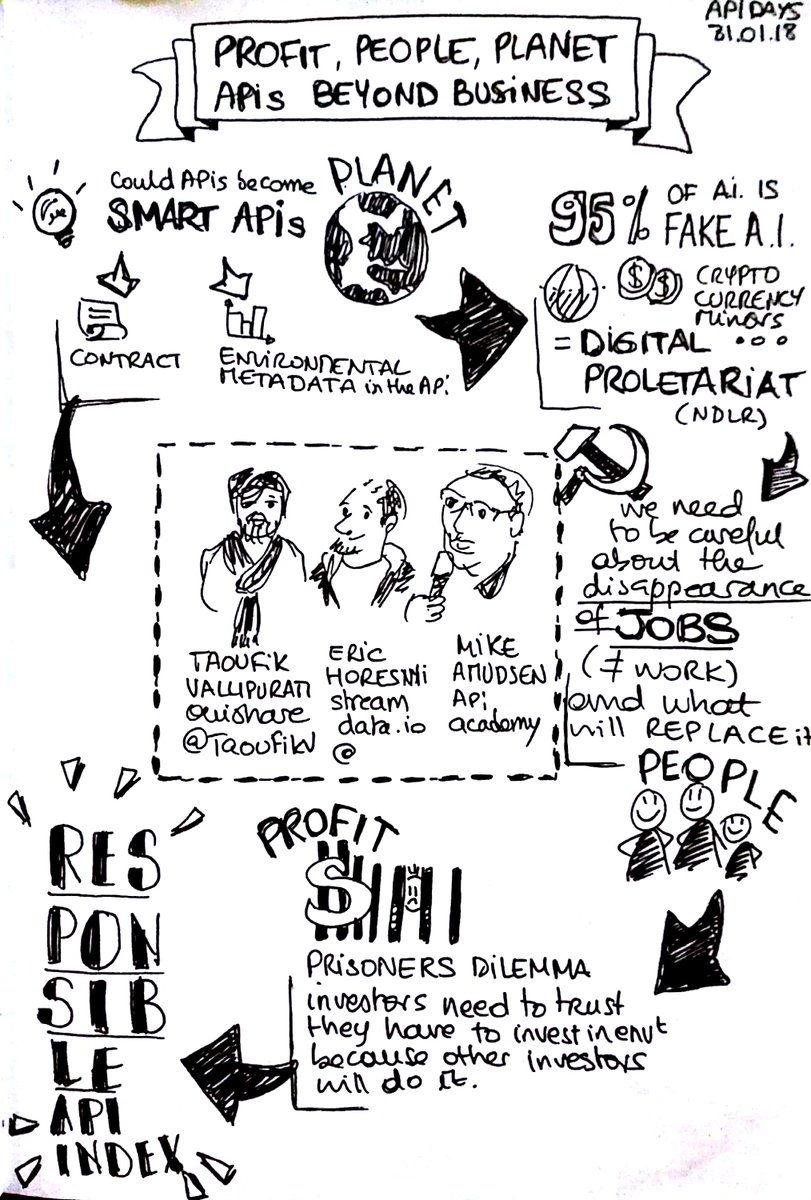 APIDAYS
31.01.18
PROFIT, PEOPLE, PLANET
APIs BEYOND BUSINESS
Could APIs become
SMART APIs
PLANET
CONTRACT
ENVIRONMENTAL
METADATA in the API
95% OF A.I. IS
FAKE A.I.
$ $
CRYPTO
CURRENCY
minors
= DIGITAL ...
PROLETARIAT
(NDLR)
we need
to be careful
about the
disappearance
of JOBS
(≠ WORK)
and what
will REPLACE it
TAOUFIK
VALLIPURATI
ouishare
@TAOUFIKV
ERIC
HORESNYI
stream
data.io
@
MIKE
AMUDSEN
API
academy
PEOPLE
PROFIT
$
PRISONERS DILEMMA
investors need to trust
they have to invest in envt
because other investors
will do it.
RES
PON
SIB
LE
API
INDEX